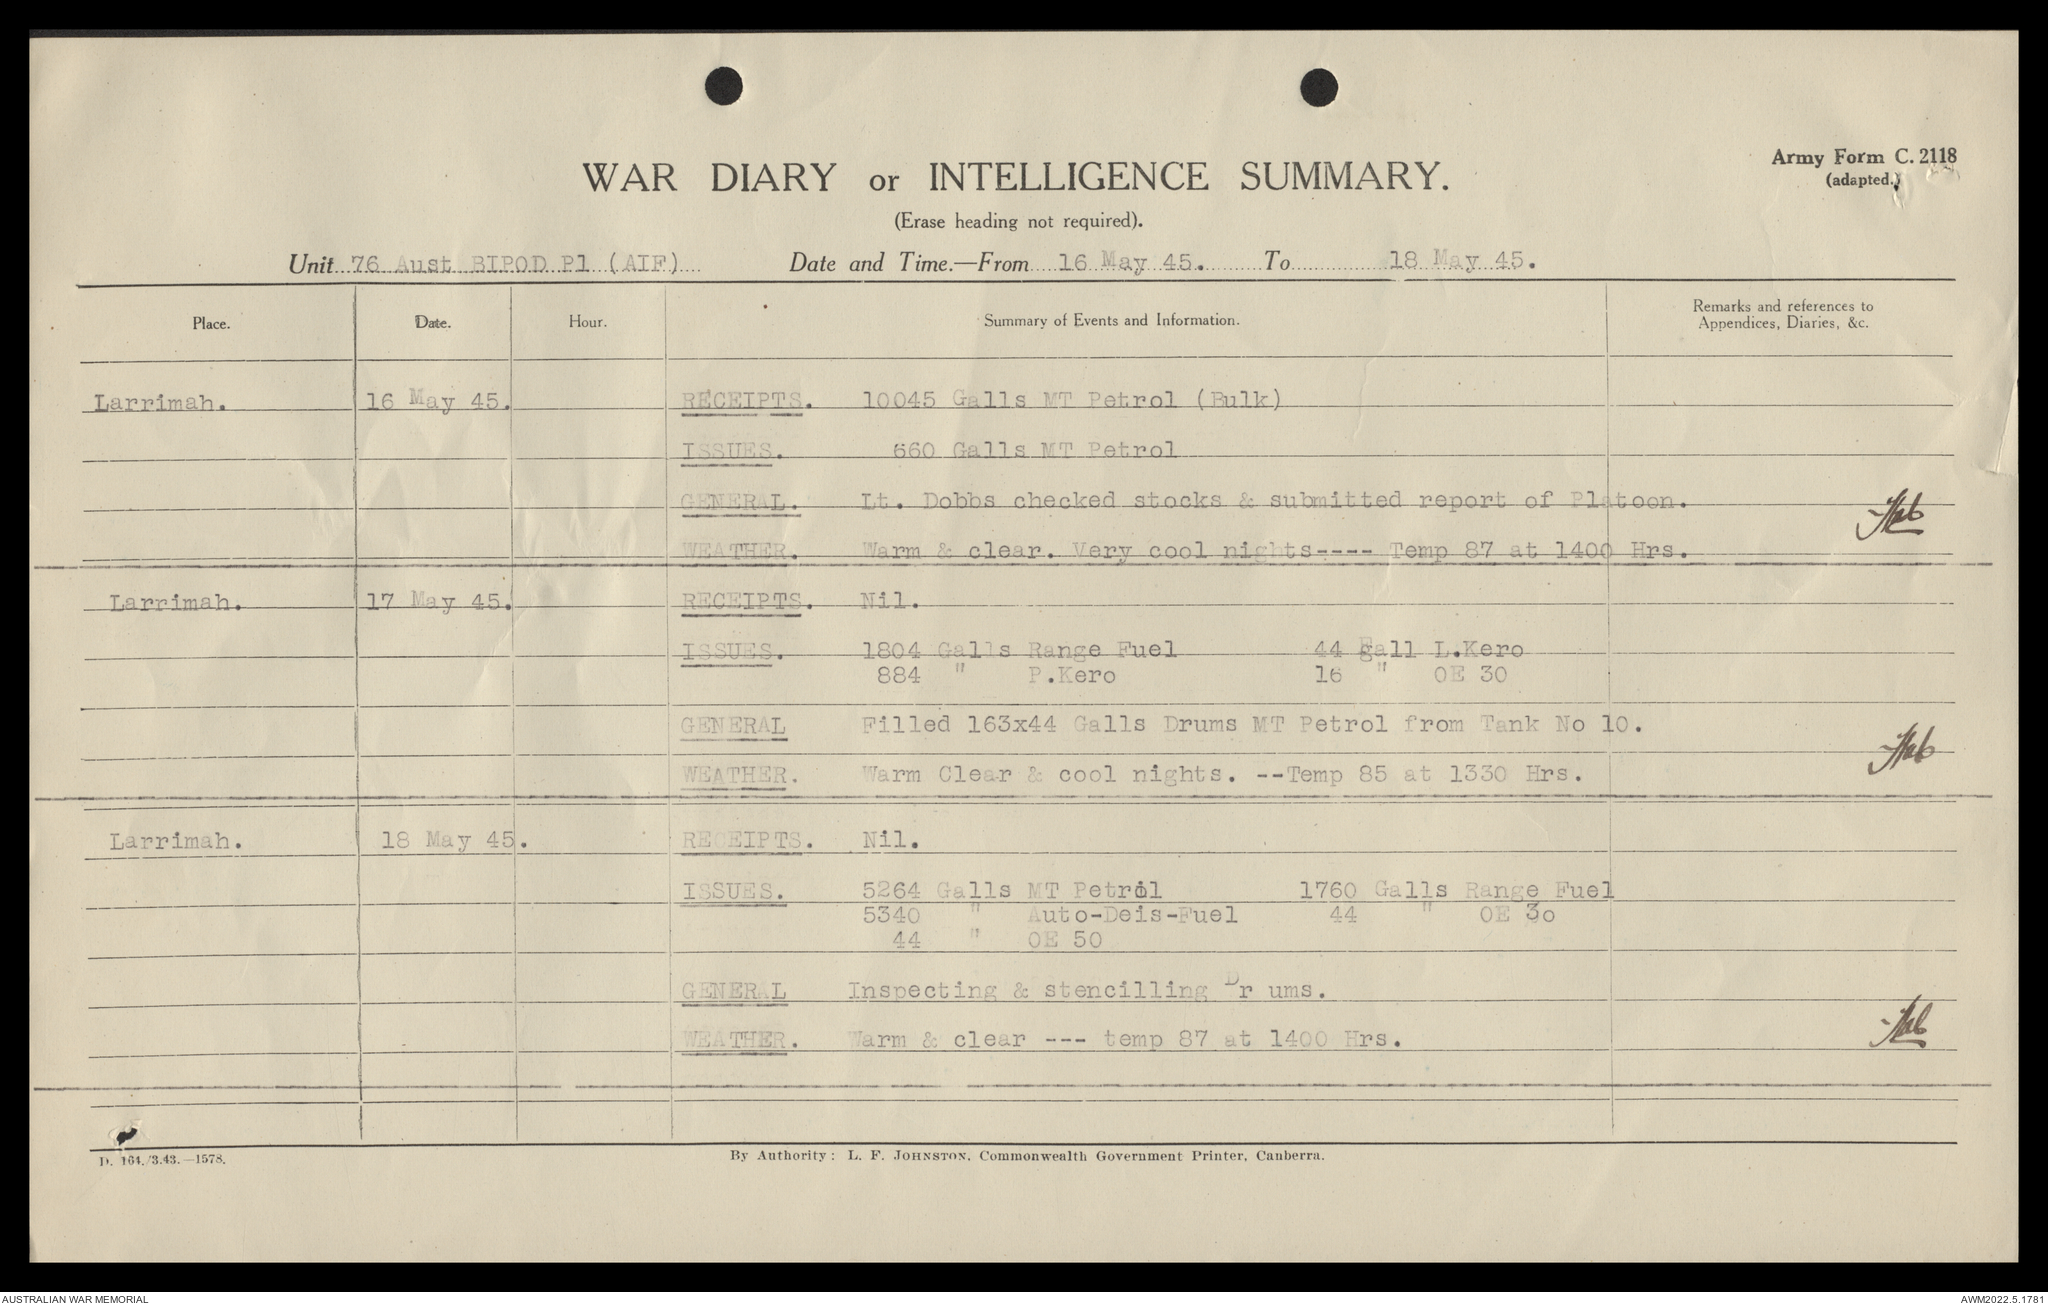 Army Form C. 2118
(adapted.)
WAR DIARY or INTELLIGENCE SUMMARY.
(Erase heading not required).
Unit 76 Aust BIPOD Pl (AIF) Date and Time.—From 16 May 45. To 18 May 45.
Place. Date. Hour. Summary of Events and Information. Remarks and references to
Appendices, Diaries, &c.
Larrimah. 16 May 45. RECEIPTS. 10045 Galls MT Petrol (Bulk)
ISSUES. 660 Galls MT Petrol
GENERAL. Lt. Dobbs checked stocks & submitted report of Platoon.
WEATHER. Warm & clear. Very cool nights---- Temp 87 at 1400 Hrs.
Larrimah. 17 May 45. RECEIPTS. Nil.
ISSUES. 1804 Galls Range Fuel 44 gall L.Kero
884 " P.Kero 16 " OE 30
GENERAL Filled 163x44 Galls Drums MT Petrol from Tank No 10.
WEATHER. Warm Clear & cool nights. --Temp 85 at 1330 Hrs.
Larrimah. 18 May 45. RECEIPTS. Nil.
ISSUES. 5264 Galls MT Petrol 1760 Galls Range Fuel
5340 " Auto-Deis-Fuel 44 " OE 30
44 " OE 50
GENERAL Inspecting & stencilling Dr ums.
WEATHER. Warm & clear --- temp 87 at 1400 Hrs.
D. 164./3.43.—1578.
By Authority: L. F. JOHNSTON, Commonwealth Government Printer, Canberra.
AUSTRALIAN WAR MEMORIAL
AWM2022.5.1781